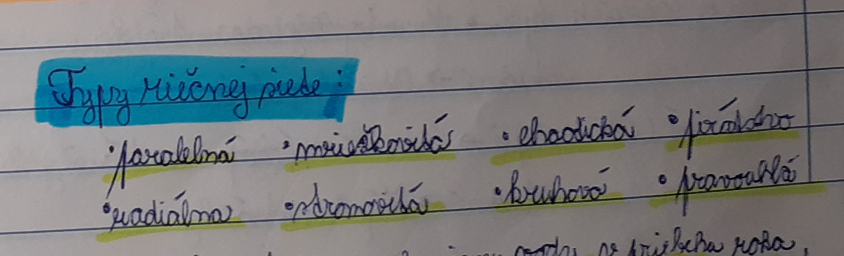 Typy riečnej siete:
• paralelná • mriežkovitá • chaotická
• radiálna • stromovitá • kruhová • pravouhlá
vody v priebehu roka,